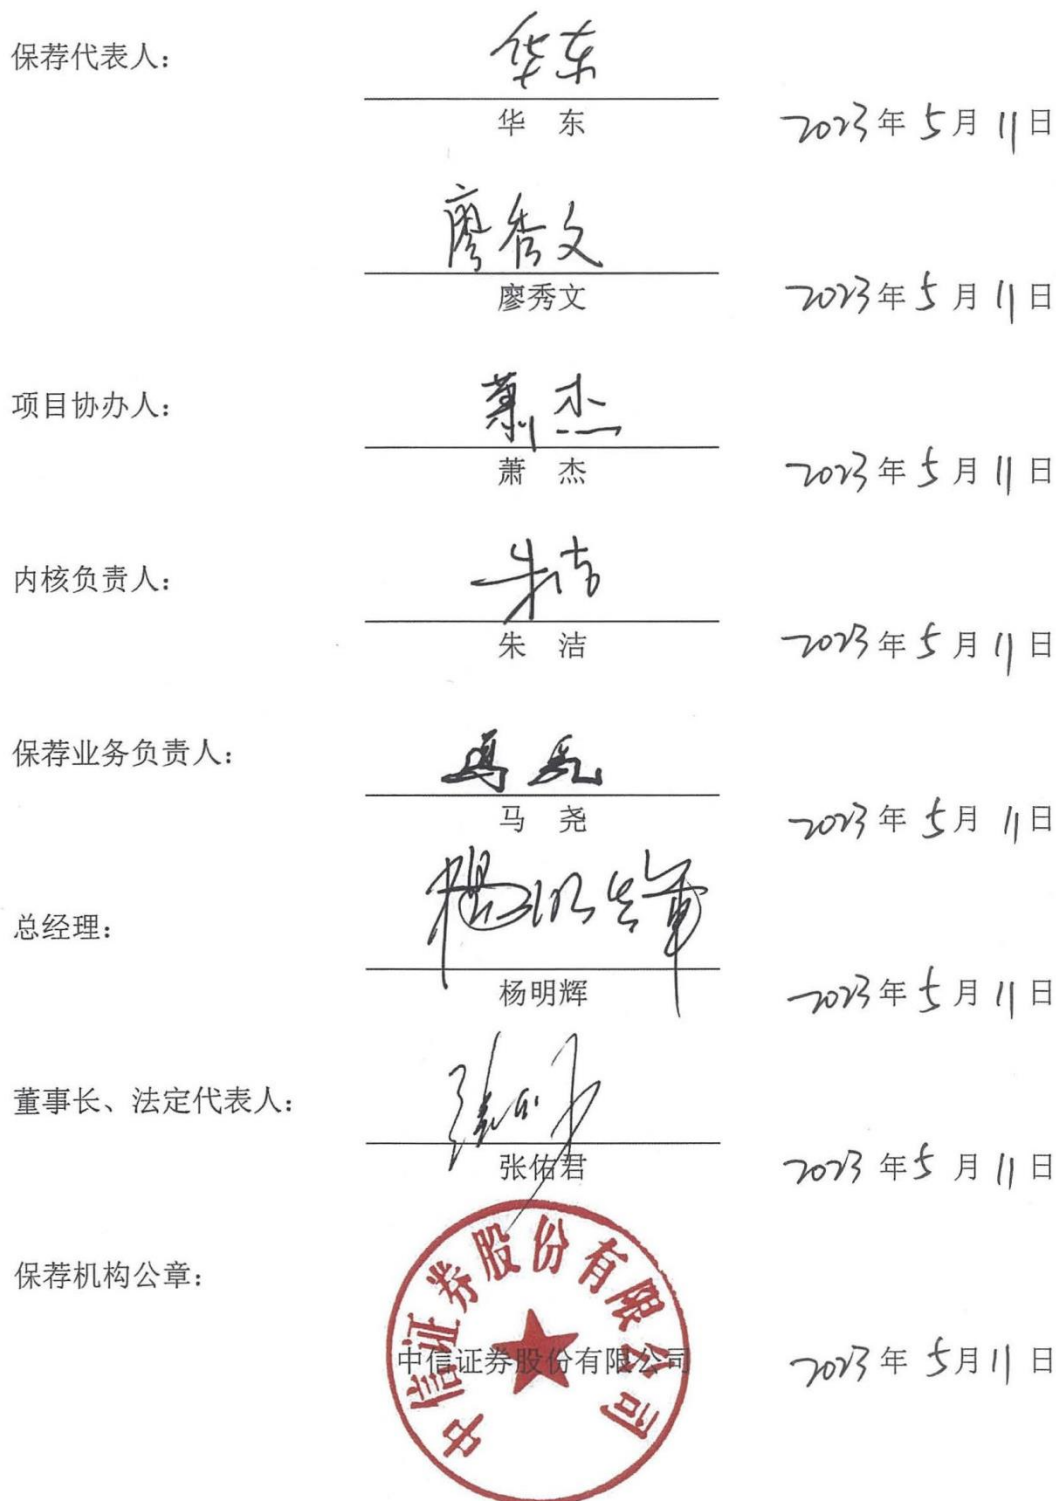 保荐代表人：
华东
华 东
2023年5月11日
廖秀文
廖秀文
2023年5月11日
项目协办人：
萧杰
萧 杰
2023年5月11日
内核负责人：
朱洁
朱 洁
2023年5月11日
保荐业务负责人：
马尧
马 尧
2023年5月11日
总经理：
杨明辉
杨明辉
2023年5月11日
董事长、法定代表人：
张佑君
张佑君
2023年5月11日
保荐机构公章：
中信证券股份有限公司
中信证券股份有限公司
2023年5月11日